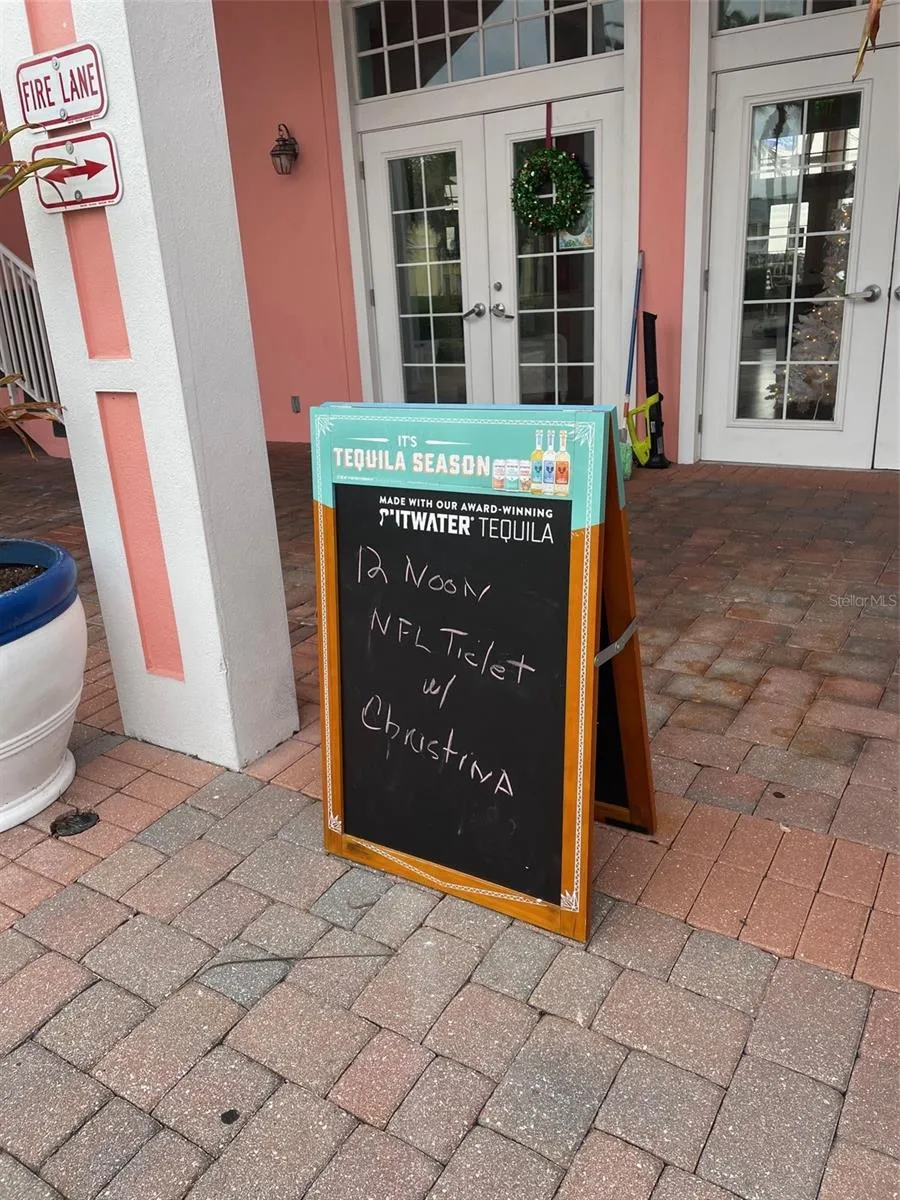 FIRE LANE
IT'S
TEQUILA SEASON
MADE WITH OUR AWARD-WINNING
CUTWATER TEQUILA
12 NOON
NFL Ticket
w/
ChristINA
StellarMLS